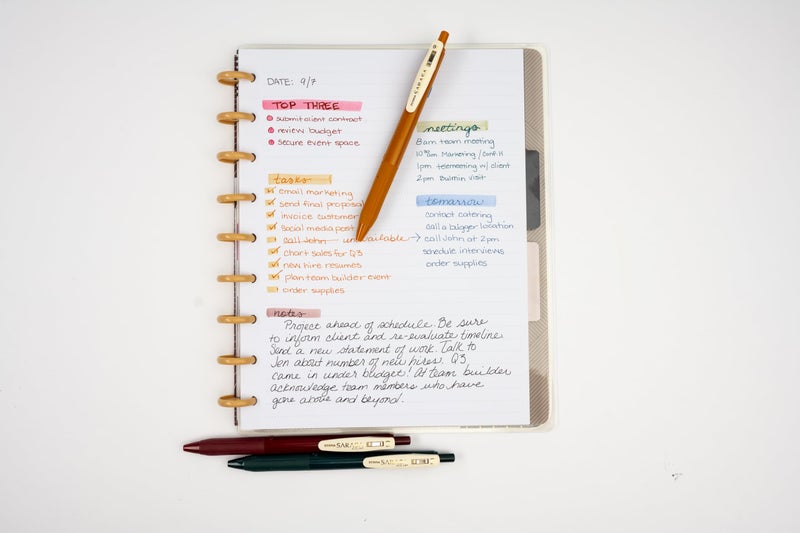 DATE: 9/7
TOP THREE
submit client contract
review budget
secure event space
tasks
email marketing
send final proposal
invoice customer
social media post
call John unavailable →
chart sales for Q3
new hire resumes
plan team builder event
order supplies
meetings
8am team meeting
10:30am Marketing / Conf. H
1pm telemeeting w/ client
2pm visit
tomorrow
contact catering
call a bigger location
call John at 2pm
schedule interviews
order supplies
notes
Project ahead of schedule. Be sure
to inform client and re-evaluate timeline.
Send a new statement of work. Talk to
Jen about number of new hires. Q3
came in under budget! At team builder
acknowledge team members who have
gone above and beyond.
SARASA
ZEBRA SARASA
ZEBRA SARASA